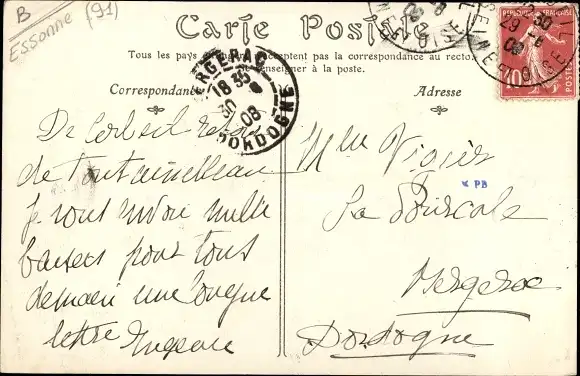 B
Essonne (91)
Carte Postale
Tous les pays étrangers n'acceptent pas la correspondance au recto.
se renseigner à la poste.
Correspondance
Adresse
BERGERAC
18 35
30
08
DORDOGNE
SEINE-ET-OISE
29
08
REPUBLIQUE FRANÇAISE
10
De Corbeil
de Fontainebleau
je vous envoie mille
baisers pour tous
demain une longue
lettre
Mlle Vigier
La
PB
Bergerac
Dordogne